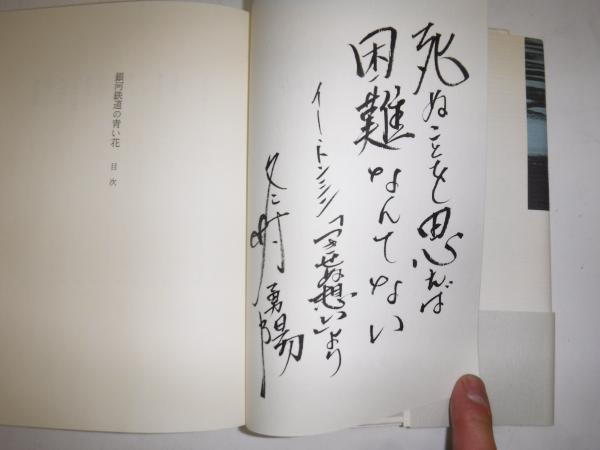 死ぬことを思えば
困難なんてない
イー・トンシン「つきせぬ想い」より
勇陽
銀河鉄道の青い花 目次